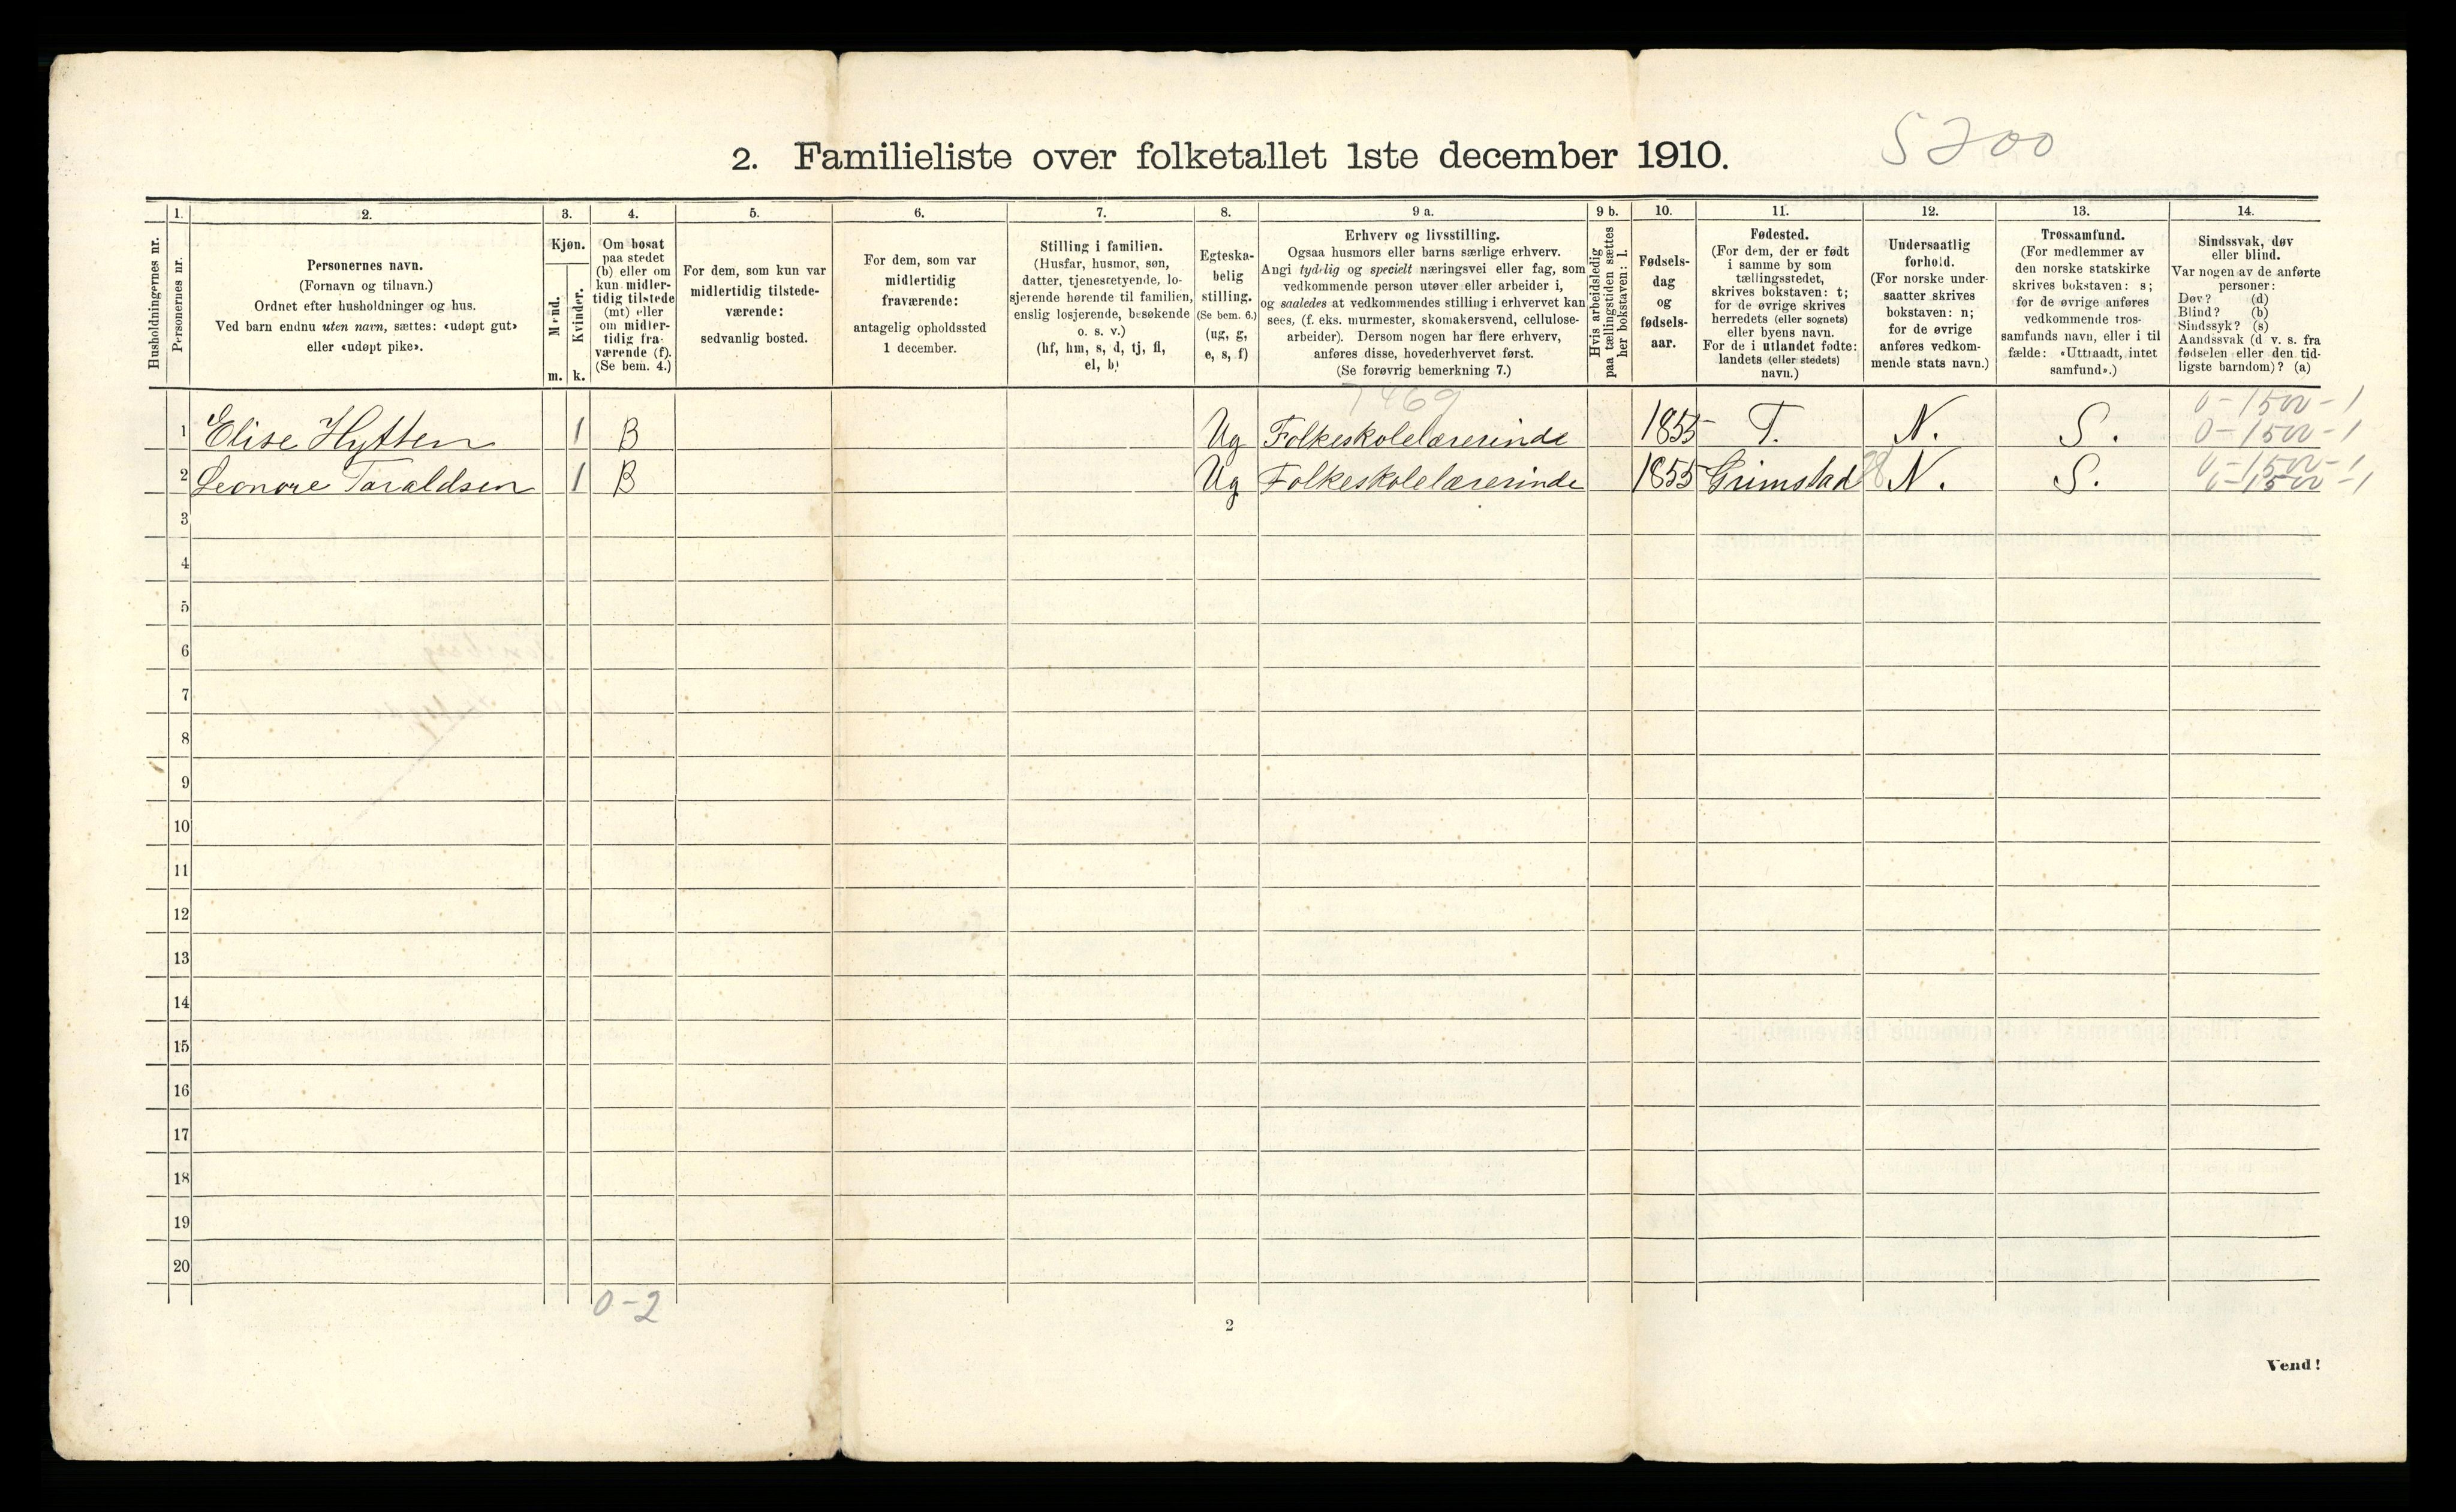 5200
2. Familieliste over folketallet 1ste december 1910.
Husholdningernes nr.
1.
Personernes nr.
2.
Personernes navn.
(Fornavn og tilnavn.)
Ordnet efter husholdninger og hus.
Ved barn endnu uten navn, sættes: «udøpt gut»
eller «udøpt pike».
3.
Kjøn.
Mænd.
m.
Kvinder.
k.
4.
Om bosat
paa stedet
(b) eller om
kun midler-
tidig tilstede
(mt) eller
om midler-
tidig fra-
værende (f).
(Se bem. 4.)
5.
For dem, som kun var
midlertidig tilstede-
værende:
sedvanlig bosted.
6.
For dem, som var
midlertidig
fraværende:
antagelig opholdssted
1 december.
7.
Stilling i familien.
(Husfar, husmor, søn,
datter, tjenestetyende, lo-
sjerende hørende til familien,
enslig losjerende, besøkende
o. s. v.)
(hf, hm, s, d, tj, fl,
el, b)
8.
Egteska-
belig
stilling.
(Se bem. 6.)
(ug, g,
e, s, f)
9 a.
Erhverv og livsstilling.
Ogsaa husmors eller barns særlige erhverv.
Angi tydelig og specielt næringsvei eller fag, som
vedkommende person utøver eller arbeider i,
og saaledes at vedkommendes stilling i erhvervet kan
sees, (f. eks. murmester, skomakersvend, cellulose-
arbeider). Dersom nogen har flere erhverv,
anføres disse, hovederhvervet først.
(Se forøvrig bemerkning 7.)
9 b.
Hvis arbeidsledig
paa tællingstiden sættes
her bokstaven: l.
10.
Fødsels-
dag
og
fødsels-
aar.
11.
Fødested.
(For dem, der er født
i samme by som
tællingsstedet,
skrives bokstaven: t;
for de øvrige skrives
herredets (eller sognets)
eller byens navn.
For de i utlandet fødte:
landets (eller stedets)
navn.)
12.
Undersaatlig
forhold.
(For norske under-
saatter skrives
bokstaven: n;
for de øvrige
anføres vedkom-
mende stats navn.)
13.
Trossamfund.
(For medlemmer av
den norske statskirke
skrives bokstaven: s;
for de øvrige anføres
vedkommende tros-
samfunds navn, eller i til
fælde: «Uttraadt, intet
samfund».)
14.
Sindssvak, døv
eller blind.
Var nogen av de anførte
personer:
Døv? (d)
Blind? (b)
Sindssyk? (s)
Aandssvak (d v. s. fra
fødselen eller den tid-
ligste barndom)? (a)
7469
0-1500-1
1 Elise Hytten 1 B Ug Folkeskolelærerinde 1855 T. N. S. 0-1500-1
0-1500-1
2 Leonore Taraldsen 1 B Ug Folkeskolelærerinde 1855 Grimstad N. S. 0-1500-1
3
4
5
6
7
8
9
10
11
12
13
14
15
16
17
18
19
20
0-2
2
Vend!